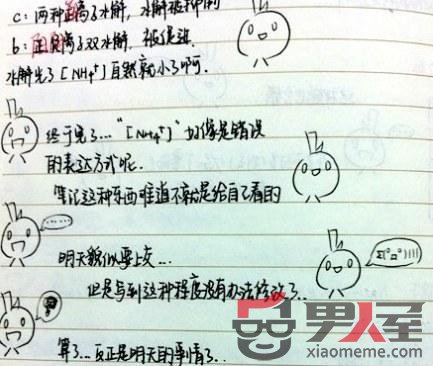 c:两种离子水解,水解被抑制
b:阴阳离子双水解,被促进
水解完了[NH4+]自然就小了啊.
终于完了..."[NH4+]"好像是错误
的表达方式呢.
笔记这种东西难道不就是给自己看的
......
明天貌似要上交...
Σ(°□°))))
但是写到这种程度没有办法修改了..
算了...反正是明天的事情了..
男人屋
xiaomeme.com